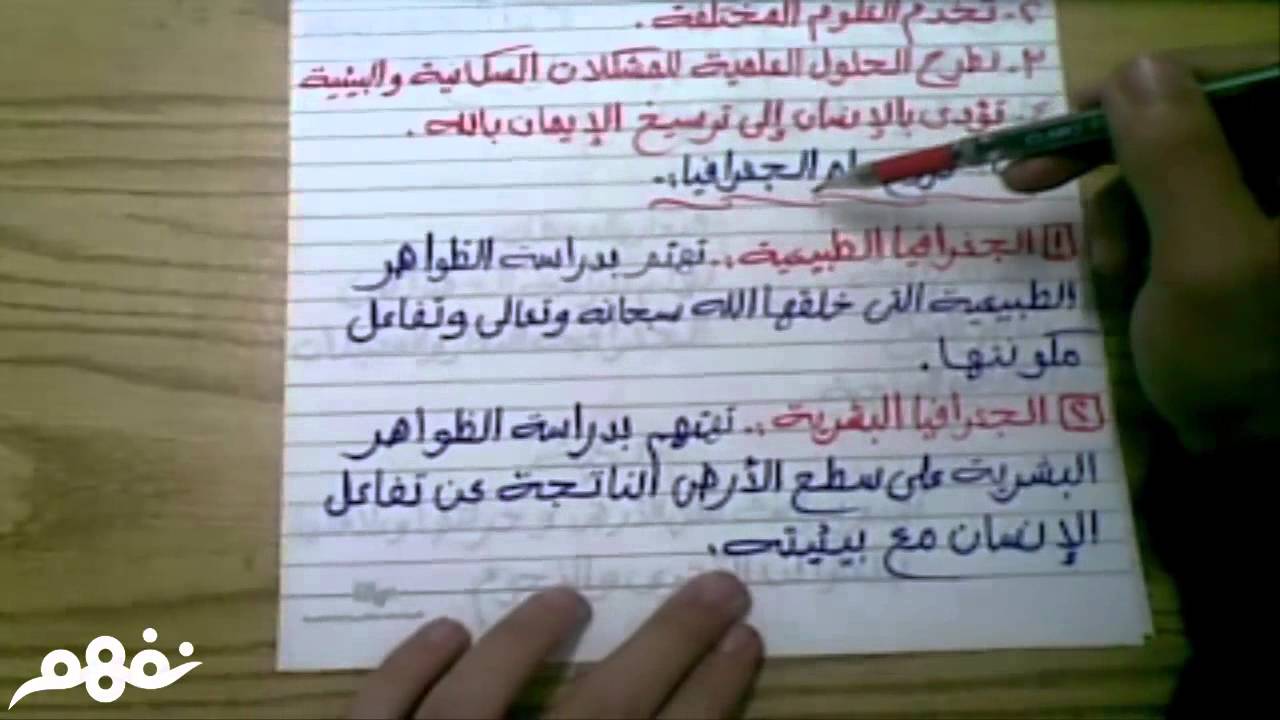 ٢- تخدم العلوم المختلفة.
٣- تطرح الحلول العلمية للمشكلات السكانية والبيئية
تؤدى بالإنسان إلى ترسيخ الإيمان بالله.
الجغرافيا:-
١ الجغرافيا الطبيعية:- تهتم بدراسة الظواهر
الطبيعية التى خلقها الله سبحانه وتعالى وتفاعل
مكوننها.
٢ الجغرافيا البشرية:- تهتم بدراسة الظواهر
البشرية على سطح الأرض الناتجة عن تفاعل
الإنسان مع بيئيته.
نفهم